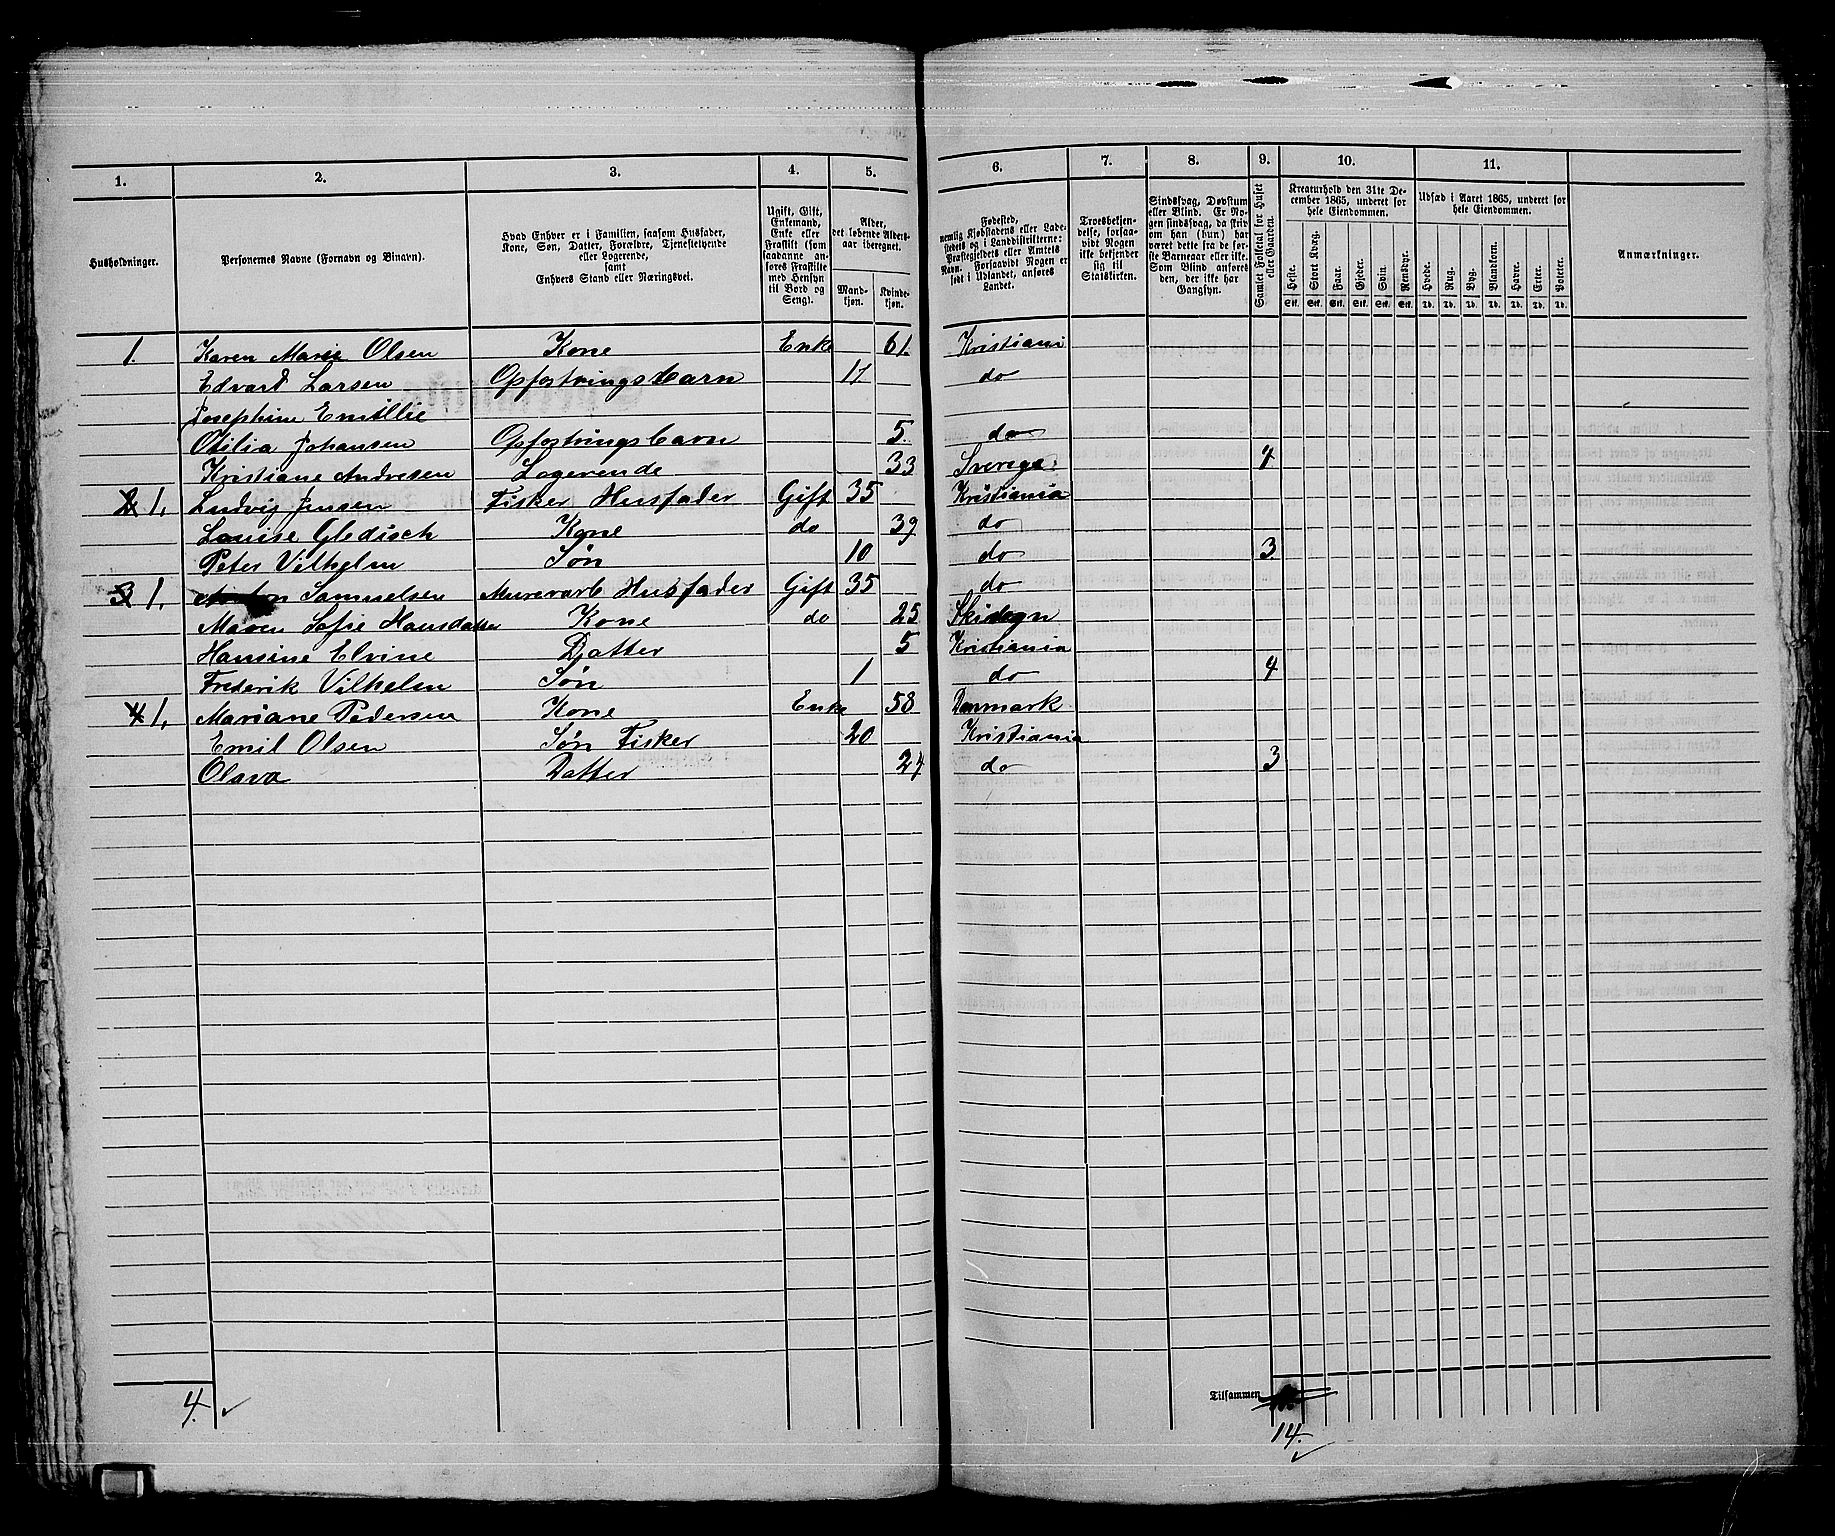 1. 2. 3. 4. 5. 6. 7. 8. 9. 10. 11.
Husholdninger.
Personernes Navne (Fornavn og Binavn).
Hvad Enhver er i Familien, saasom Husfader,
Kone, Søn, Datter, Forældre, Tjenestetyende
eller Logerende,
samt
Enhvers Stand eller Næringsvei.
Ugift, Gift,
Enkemand,
Enke eller
Fraskilt (som
saadanne an-
føres Fraskilte
med Hensyn
til Bord og
Seng).
Alder,
det løbende Alders-
aar iberegnet.
Mand-
kjøn.
Kvinde-
kjøn.
Fødested,
nemlig Kjøbstadens eller Lade-
stedets og i Landdistrikterne:
Præstegjeldets eller Amtets
Navn. Forsaavidt Nogen er
født i Udlandet, anføres
Landet.
Troesbekjen-
delse, forsaa-
vidt Nogen
ikke bekjender
sig til
Statskirken.
Sindssvag, Døvstum
eller Blind. Er No-
gen sindssvag, da skriv
om han (hun) har
været dette fra de før-
ste Barneaar eller ikke.
Som Blind anføres
den, der ikke har
Gangsyn.
Samlet Folketal for Huset
eller Gaarden.
Kreaturhold den 31te De-
cember 1865, underet for
hele Eiendommen.
Heste. Stort Kvæg. Faar. Gjeder. Svin. Rensdyr.
Stk. Stk. Stk. Stk. Stk. Stk.
Udsæd i Aaret 1865, underet for
hele Eiendommen.
Hvede. Rug. Byg. Blandkorn. Havre. Erter. Poteter.
Td. Td. Td. Td. Td. Td. Td.
Anmærkninger.
1. Karen Marie Olsen Kone Enke 61. Kristiani
Edvard Larsen Opfostringsbarn 17 do
Josephine Emillie
Otilia Johansen Opfostringsbarn 5. do
Kristiane Andresen Logerende 33 Sverige. 4
2 1. Ludvig Jensen Fisker Husfader Gift 35 Kristiania
Louise Gledisch Kone do 39 do
Peter Vilhelm Søn 10 do 3
3 1. Anton Samuelsen Murerarb Husfader Gift 35 do
Maren Sofie Hansdatter Kone do 25 Skidsogn
Hansine Elvine Datter 5 Kristiania
Frederik Vilhelm Søn 1 do 4
4 1. Mariane Pedersen Kone Enke 58 Danmark
Emil Olsen Søn Fisker 20 Kristiania
Olava Datter 24 do 3
4.
Tilsammen
14.